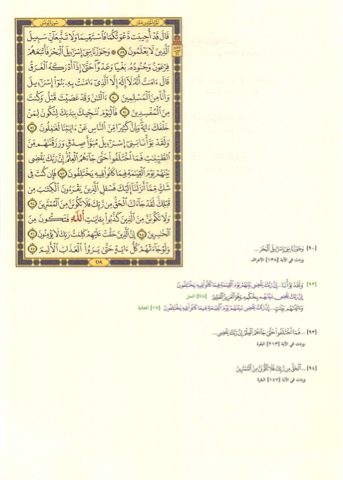 سورة يونس
قَالَ قَدْ أُجِيبَت دَّعْوَتُكُمَا فَاسْتَقِيمَا وَلَا تَتَّبِعَانِّ سَبِيلَ
الَّذِينَ لَا يَعْلَمُونَ ٨٩ وَجَاوَزْنَا بِبَنِي إِسْرَائِيلَ الْبَحْرَ فَأَتْبَعَهُمْ
فِرْعَوْنُ وَجُنُودُهُ بَغْيًا وَعَدْوًا حَتَّى إِذَا أَدْرَكَهُ الْغَرَقُ
قَالَ ءَامَنتُ أَنَّهُ لَا إِلَهَ إِلَّا الَّذِي ءَامَنَتْ بِهِ بَنُوا إِسْرَائِيلَ
وَأَنَا مِنَ الْمُسْلِمِينَ ٩٠ ءَآلْآنَ وَقَدْ عَصَيْتَ قَبْلُ وَكُنتَ
مِنَ الْمُفْسِدِينَ ٩١ فَالْيَوْمَ نُنَجِّيكَ بِبَدَنِكَ لِتَكُونَ لِمَنْ
خَلْفَكَ ءَايَةً وَإِنَّ كَثِيرًا مِّنَ النَّاسِ عَنْ ءَايَاتِنَا لَغَافِلُونَ ٩٢
وَلَقَدْ بَوَّأْنَا بَنِي إِسْرَائِيلَ مُبَوَّأَ صِدْقٍ وَرَزَقْنَاهُم مِّنَ
الطَّيِّبَاتِ فَمَا اخْتَلَفُوا حَتَّى جَاءَهُمُ الْعِلْمُ إِنَّ رَبَّكَ يَقْضِي
بَيْنَهُمْ يَوْمَ الْقِيَامَةِ فِيمَا كَانُوا فِيهِ يَخْتَلِفُونَ ٩٣ فَإِن كُنتَ فِي
شَكٍّ مِّمَّا أَنزَلْنَا إِلَيْكَ فَسْئَلِ الَّذِينَ يَقْرَءُونَ الْكِتَابَ مِن
قَبْلِكَ لَقَدْ جَاءَكَ الْحَقُّ مِن رَّبِّكَ فَلَا تَكُونَنَّ مِنَ الْمُمْتَرِينَ ٩٤
وَلَا تَكُونَنَّ مِنَ الَّذِينَ كَذَّبُوا بِآيَاتِ اللَّهِ فَتَكُونَ مِنَ
الْخَاسِرِينَ ٩٥ إِنَّ الَّذِينَ حَقَّتْ عَلَيْهِمْ كَلِمَتُ رَبِّكَ لَا يُؤْمِنُونَ ٩٦
وَلَوْ جَاءَتْهُمْ كُلُّ ءَايَةٍ حَتَّى يَرَوُا الْعَذَابَ الْأَلِيمَ ٩٧
٢١٩
[٩٠] وَجَاوَزْنَا بِبَنِي إِسْرَائِيلَ الْبَحْرَ...
وردت في الآية [١٣٨] الأعراف
[٩٣] وَلَقَدْ بَوَّأْنَا... إِنَّ رَبَّكَ يَقْضِي بَيْنَهُمْ يَوْمَ الْقِيَامَةِ فِيمَا كَانُوا فِيهِ يَخْتَلِفُونَ
إِنَّ رَبَّكَ يَقْضِي بَيْنَهُم بِحُكْمِهِ وَهُوَ الْعَزِيزُ الْعَلِيمُ [٧٨] النمل
وَءَاتَيْنَاهُم بَيِّنَاتٍ... إِنَّ رَبَّكَ يَقْضِي بَيْنَهُمْ يَوْمَ الْقِيَامَةِ فِيمَا كَانُوا فِيهِ يَخْتَلِفُونَ [١٧] الجاثية
[٩٣] ...فَمَا اخْتَلَفُوا حَتَّى جَاءَهُمُ الْعِلْمُ إِنَّ رَبَّكَ يَقْضِي...
وردت في الآية [٢١٣] البقرة
[٩٤] ...الْحَقُّ مِن رَّبِّكَ فَلَا تَكُونَنَّ مِنَ الْمُمْتَرِينَ
وردت في الآية [١٤٧] البقرة